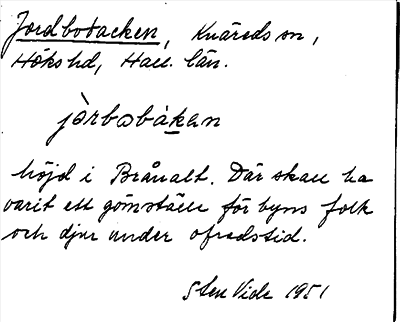 Jordbobacken, Knäreds sn,
Höks hd, Hall. län.
jòrbobákan
höjd i Brånalt. Där skall ha
varit ett gömställe för byns folk
och djur under ofredstid.
Sten Vide 1951